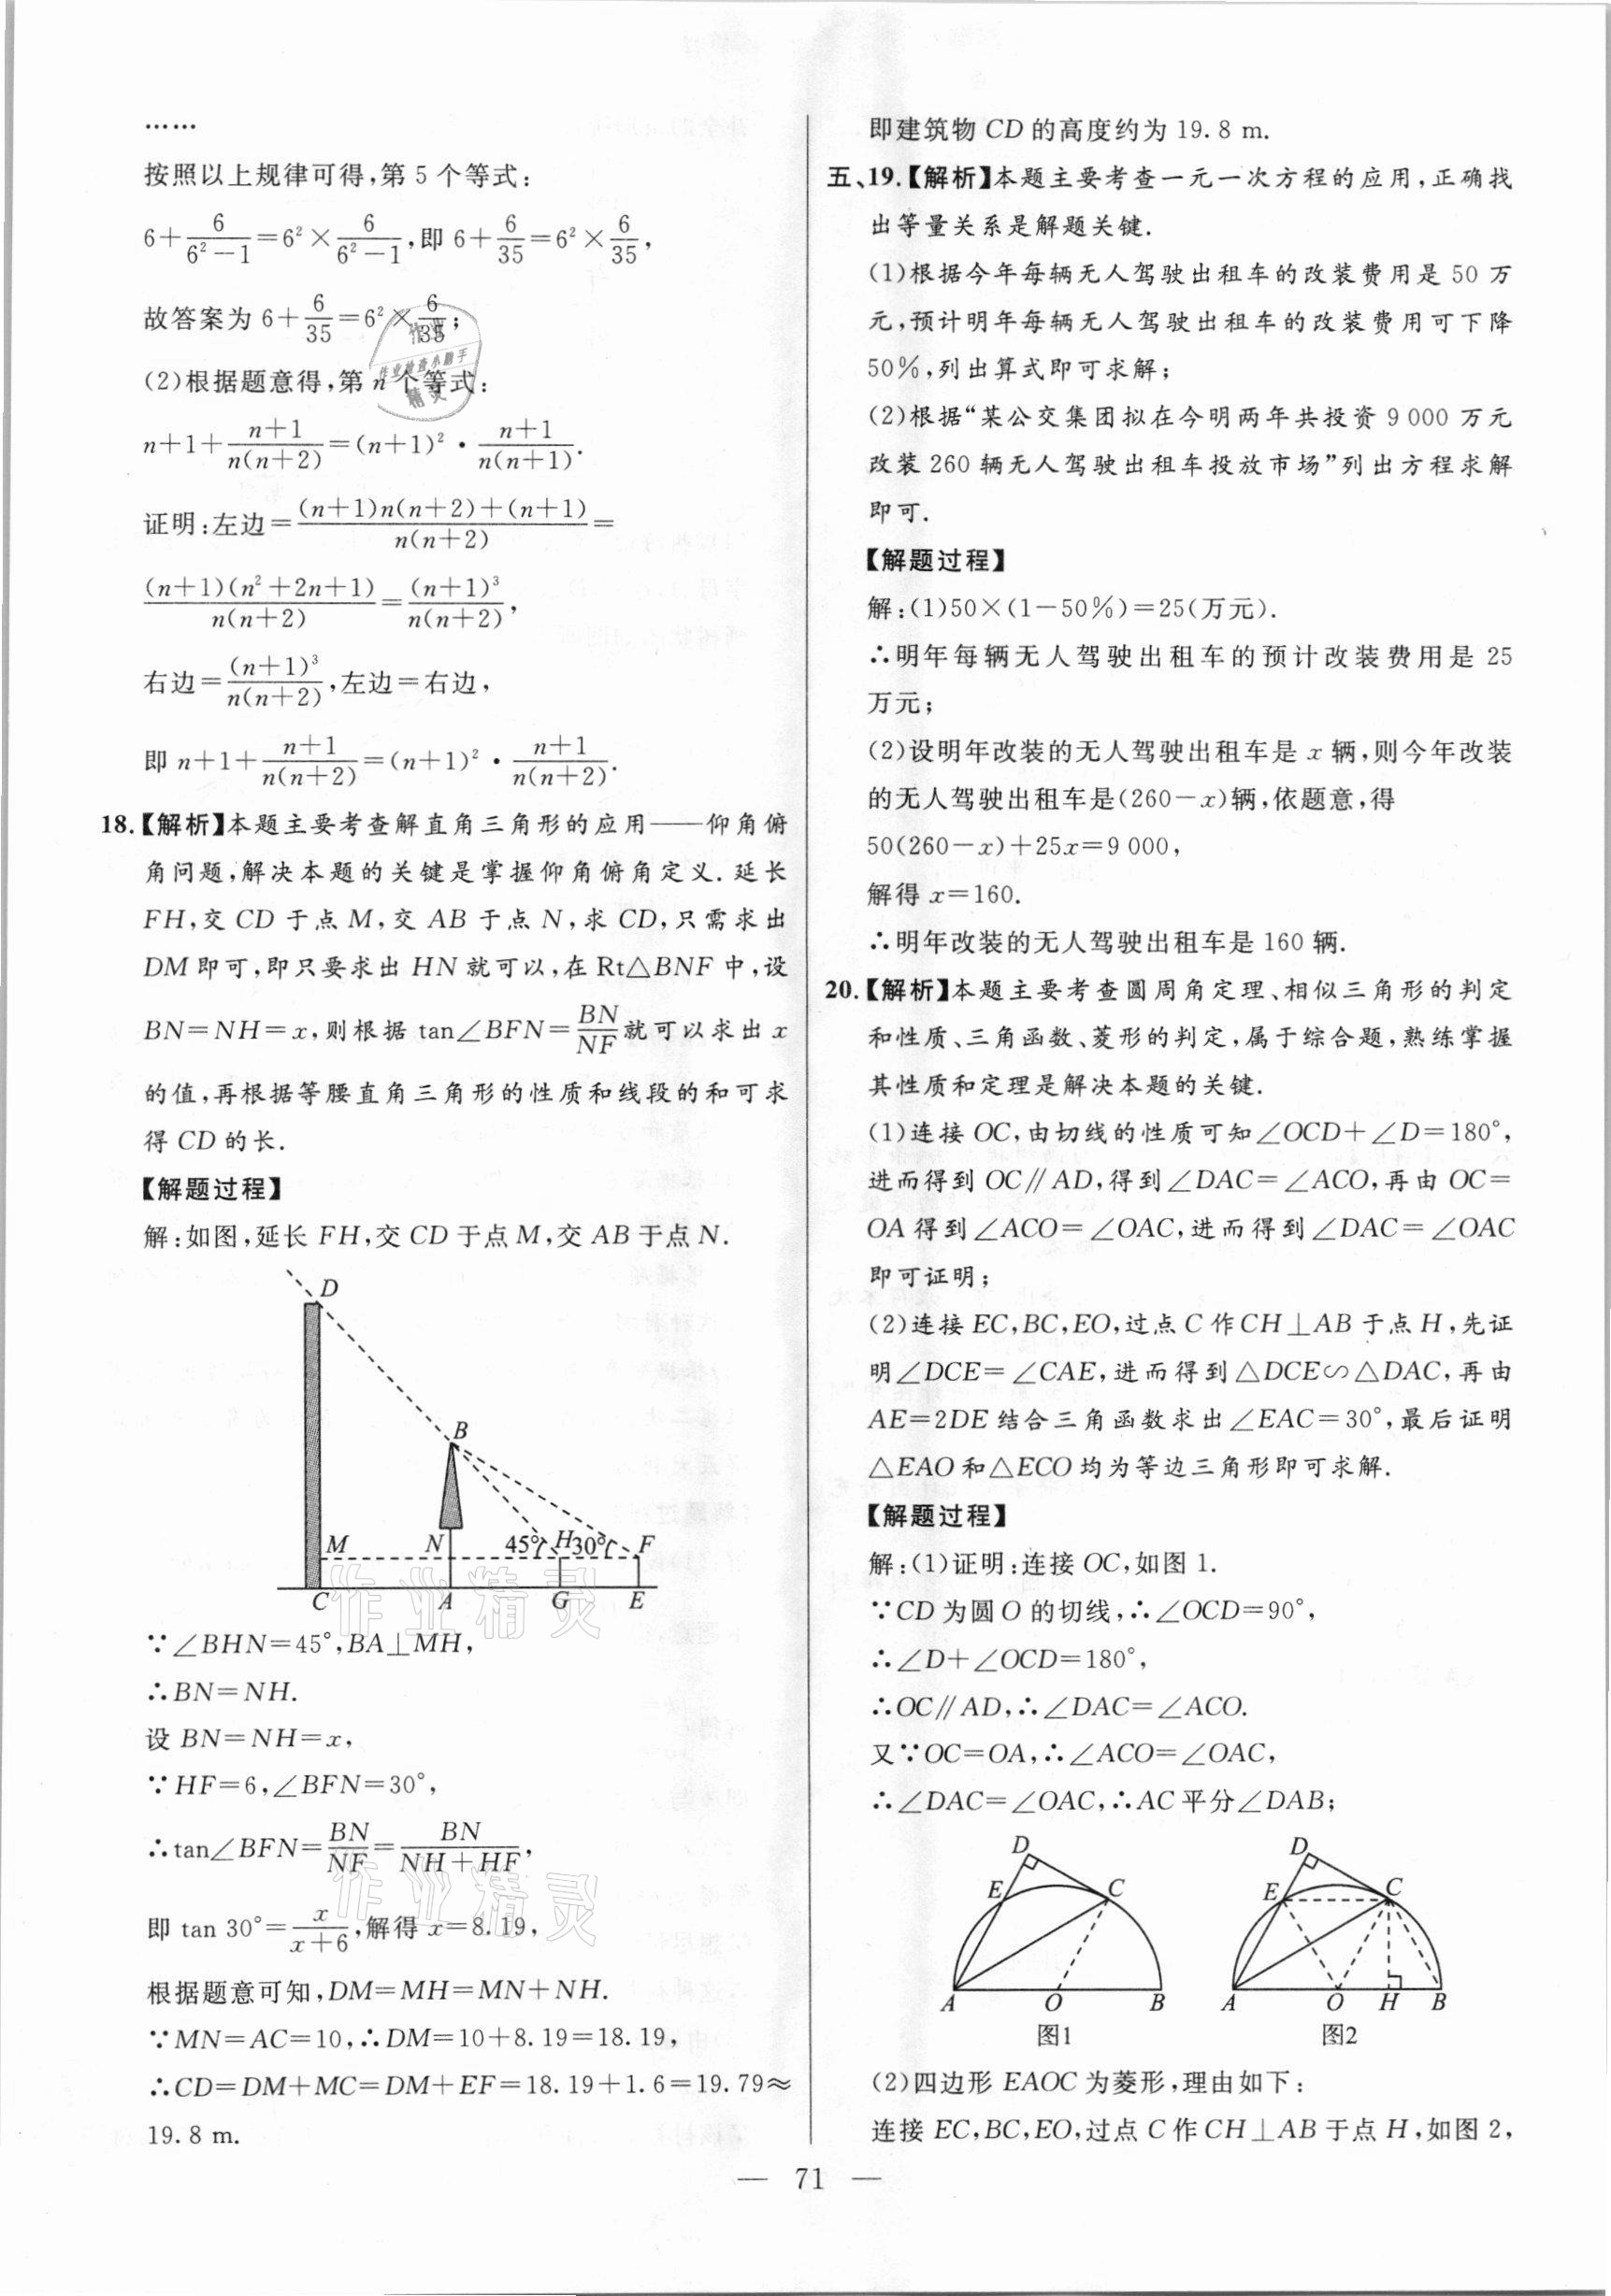 ……
按照以上规律可得,第 5 个等式:
6+6/(6²-1)=6²×6/(6²-1),即 6+6/35=6²×6/35,
故答案为 6+6/35=6²×6/35;
(2)根据题意得,第 n 个等式:
n+1+(n+1)/(n(n+2))=(n+1)²·(n+1)/(n(n+1)).
证明:左边=((n+1)n(n+2)+(n+1))/(n(n+2))=
((n+1)(n²+2n+1))/(n(n+2))=(n+1)³/(n(n+2)),
右边=(n+1)³/(n(n+2)),左边=右边,
即 n+1+(n+1)/(n(n+2))=(n+1)²·(n+1)/(n(n+2)).
18.【解析】本题主要考查解直角三角形的应用——仰角俯
角问题,解决本题的关键是掌握仰角俯角定义.延长
FH,交 CD 于点 M,交 AB 于点 N,求 CD,只需求出
DM 即可,即只要求出 HN 就可以,在 Rt△BNF 中,设
BN=NH=x,则根据 tan∠BFN=BN/NF就可以求出 x
的值,再根据等腰直角三角形的性质和线段的和可求
得 CD 的长.
【解题过程】
解:如图,延长 FH,交 CD 于点 M,交 AB 于点 N.
D
B
M N 45° H 30° F
C A G E
∵∠BHN=45°,BA⊥MH,
∴BN=NH.
设 BN=NH=x,
∵HF=6,∠BFN=30°,
∴tan∠BFN=BN/NF=BN/(NH+HF),
即 tan 30°=x/(x+6),解得 x=8.19,
根据题意可知,DM=MH=MN+NH.
∵MN=AC=10,∴DM=10+8.19=18.19,
∴CD=DM+MC=DM+EF=18.19+1.6=19.79≈
19.8 m.
即建筑物 CD 的高度约为 19.8 m.
五、19.【解析】本题主要考查一元一次方程的应用,正确找
出等量关系是解题关键.
(1)根据今年每辆无人驾驶出租车的改装费用是 50 万
元,预计明年每辆无人驾驶出租车的改装费用可下降
50%,列出算式即可求解;
(2)根据“某公交集团拟在今明两年共投资 9 000 万元
改装 260 辆无人驾驶出租车投放市场”列出方程求解
即可.
【解题过程】
解:(1)50×(1-50%)=25(万元).
∴明年每辆无人驾驶出租车的预计改装费用是 25
万元;
(2)设明年改装的无人驾驶出租车是 x 辆,则今年改装
的无人驾驶出租车是(260-x)辆,依题意,得
50(260-x)+25x=9 000,
解得 x=160.
∴明年改装的无人驾驶出租车是 160 辆.
20.【解析】本题主要考查圆周角定理、相似三角形的判定
和性质、三角函数、菱形的判定,属于综合题,熟练掌握
其性质和定理是解决本题的关键.
(1)连接 OC,由切线的性质可知∠OCD+∠D=180°,
进而得到 OC∥AD,得到∠DAC=∠ACO,再由 OC=
OA 得到∠ACO=∠OAC,进而得到∠DAC=∠OAC
即可证明;
(2)连接 EC,BC,EO,过点 C 作 CH⊥AB 于点 H,先证
明∠DCE=∠CAE,进而得到△DCE∽△DAC,再由
AE=2DE 结合三角函数求出∠EAC=30°,最后证明
△EAO 和△ECO 均为等边三角形即可求解.
【解题过程】
解:(1)证明:连接 OC,如图 1.
∵CD 为圆 O 的切线,∴∠OCD=90°,
∴∠D+∠OCD=180°,
∴OC∥AD,∴∠DAC=∠ACO.
又∵OC=OA,∴∠ACO=∠OAC,
∴∠DAC=∠OAC,∴AC 平分∠DAB;
D
E C
A O B
图1
D
E C
A O H B
图2
(2)四边形 EAOC 为菱形,理由如下:
连接 EC,BC,EO,过点 C 作 CH⊥AB 于点 H,如图 2,
— 71 —
作业
作业检查小助手
精灵
作业精灵
作业精灵